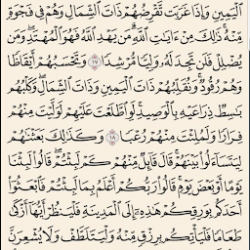 ٱلۡيَمِينِ وَإِذَا غَرَبَت تَّقۡرِضُهُمۡ ذَاتَ ٱلشِّمَالِ وَهُمۡ فِي فَجۡوَةٖ
مِّنۡهُۚ ذَٰلِكَ مِنۡ ءَايَٰتِ ٱللَّهِۗ مَن يَهۡدِ ٱللَّهُ فَهُوَ ٱلۡمُهۡتَدِۖ وَمَن
يُضۡلِلۡ فَلَن تَجِدَ لَهُۥ وَلِيّٗا مُّرۡشِدٗا ١٧ وَتَحۡسَبُهُمۡ أَيۡقَاظٗا
وَهُمۡ رُقُودٞۚ وَنُقَلِّبُهُمۡ ذَاتَ ٱلۡيَمِينِ وَذَاتَ ٱلشِّمَالِۖ وَكَلۡبُهُم
بَٰسِطٞ ذِرَاعَيۡهِ بِٱلۡوَصِيدِۚ لَوِ ٱطَّلَعۡتَ عَلَيۡهِمۡ لَوَلَّيۡتَ مِنۡهُمۡ
فِرَارٗا وَلَمُلِئۡتَ مِنۡهُمۡ رُعۡبٗا ١٨ وَكَذَٰلِكَ بَعَثۡنَٰهُمۡ
لِيَتَسَآءَلُواْ بَيۡنَهُمۡۚ قَالَ قَآئِلٞ مِّنۡهُمۡ كَمۡ لَبِثۡتُمۡۖ قَالُواْ لَبِثۡنَا
يَوۡمًا أَوۡ بَعۡضَ يَوۡمٖۚ قَالُواْ رَبُّكُمۡ أَعۡلَمُ بِمَا لَبِثۡتُمۡ فَٱبۡعَثُوٓاْ
أَحَدَكُم بِوَرِقِكُمۡ هَٰذِهِۦٓ إِلَى ٱلۡمَدِينَةِ فَلۡيَنظُرۡ أَيُّهَآ أَزۡكَىٰ
طَعَامٗا فَلۡيَأۡتِكُم بِرِزۡقٖ مِّنۡهُ وَلۡيَتَلَطَّفۡ وَلَا يُشۡعِرَنَّ